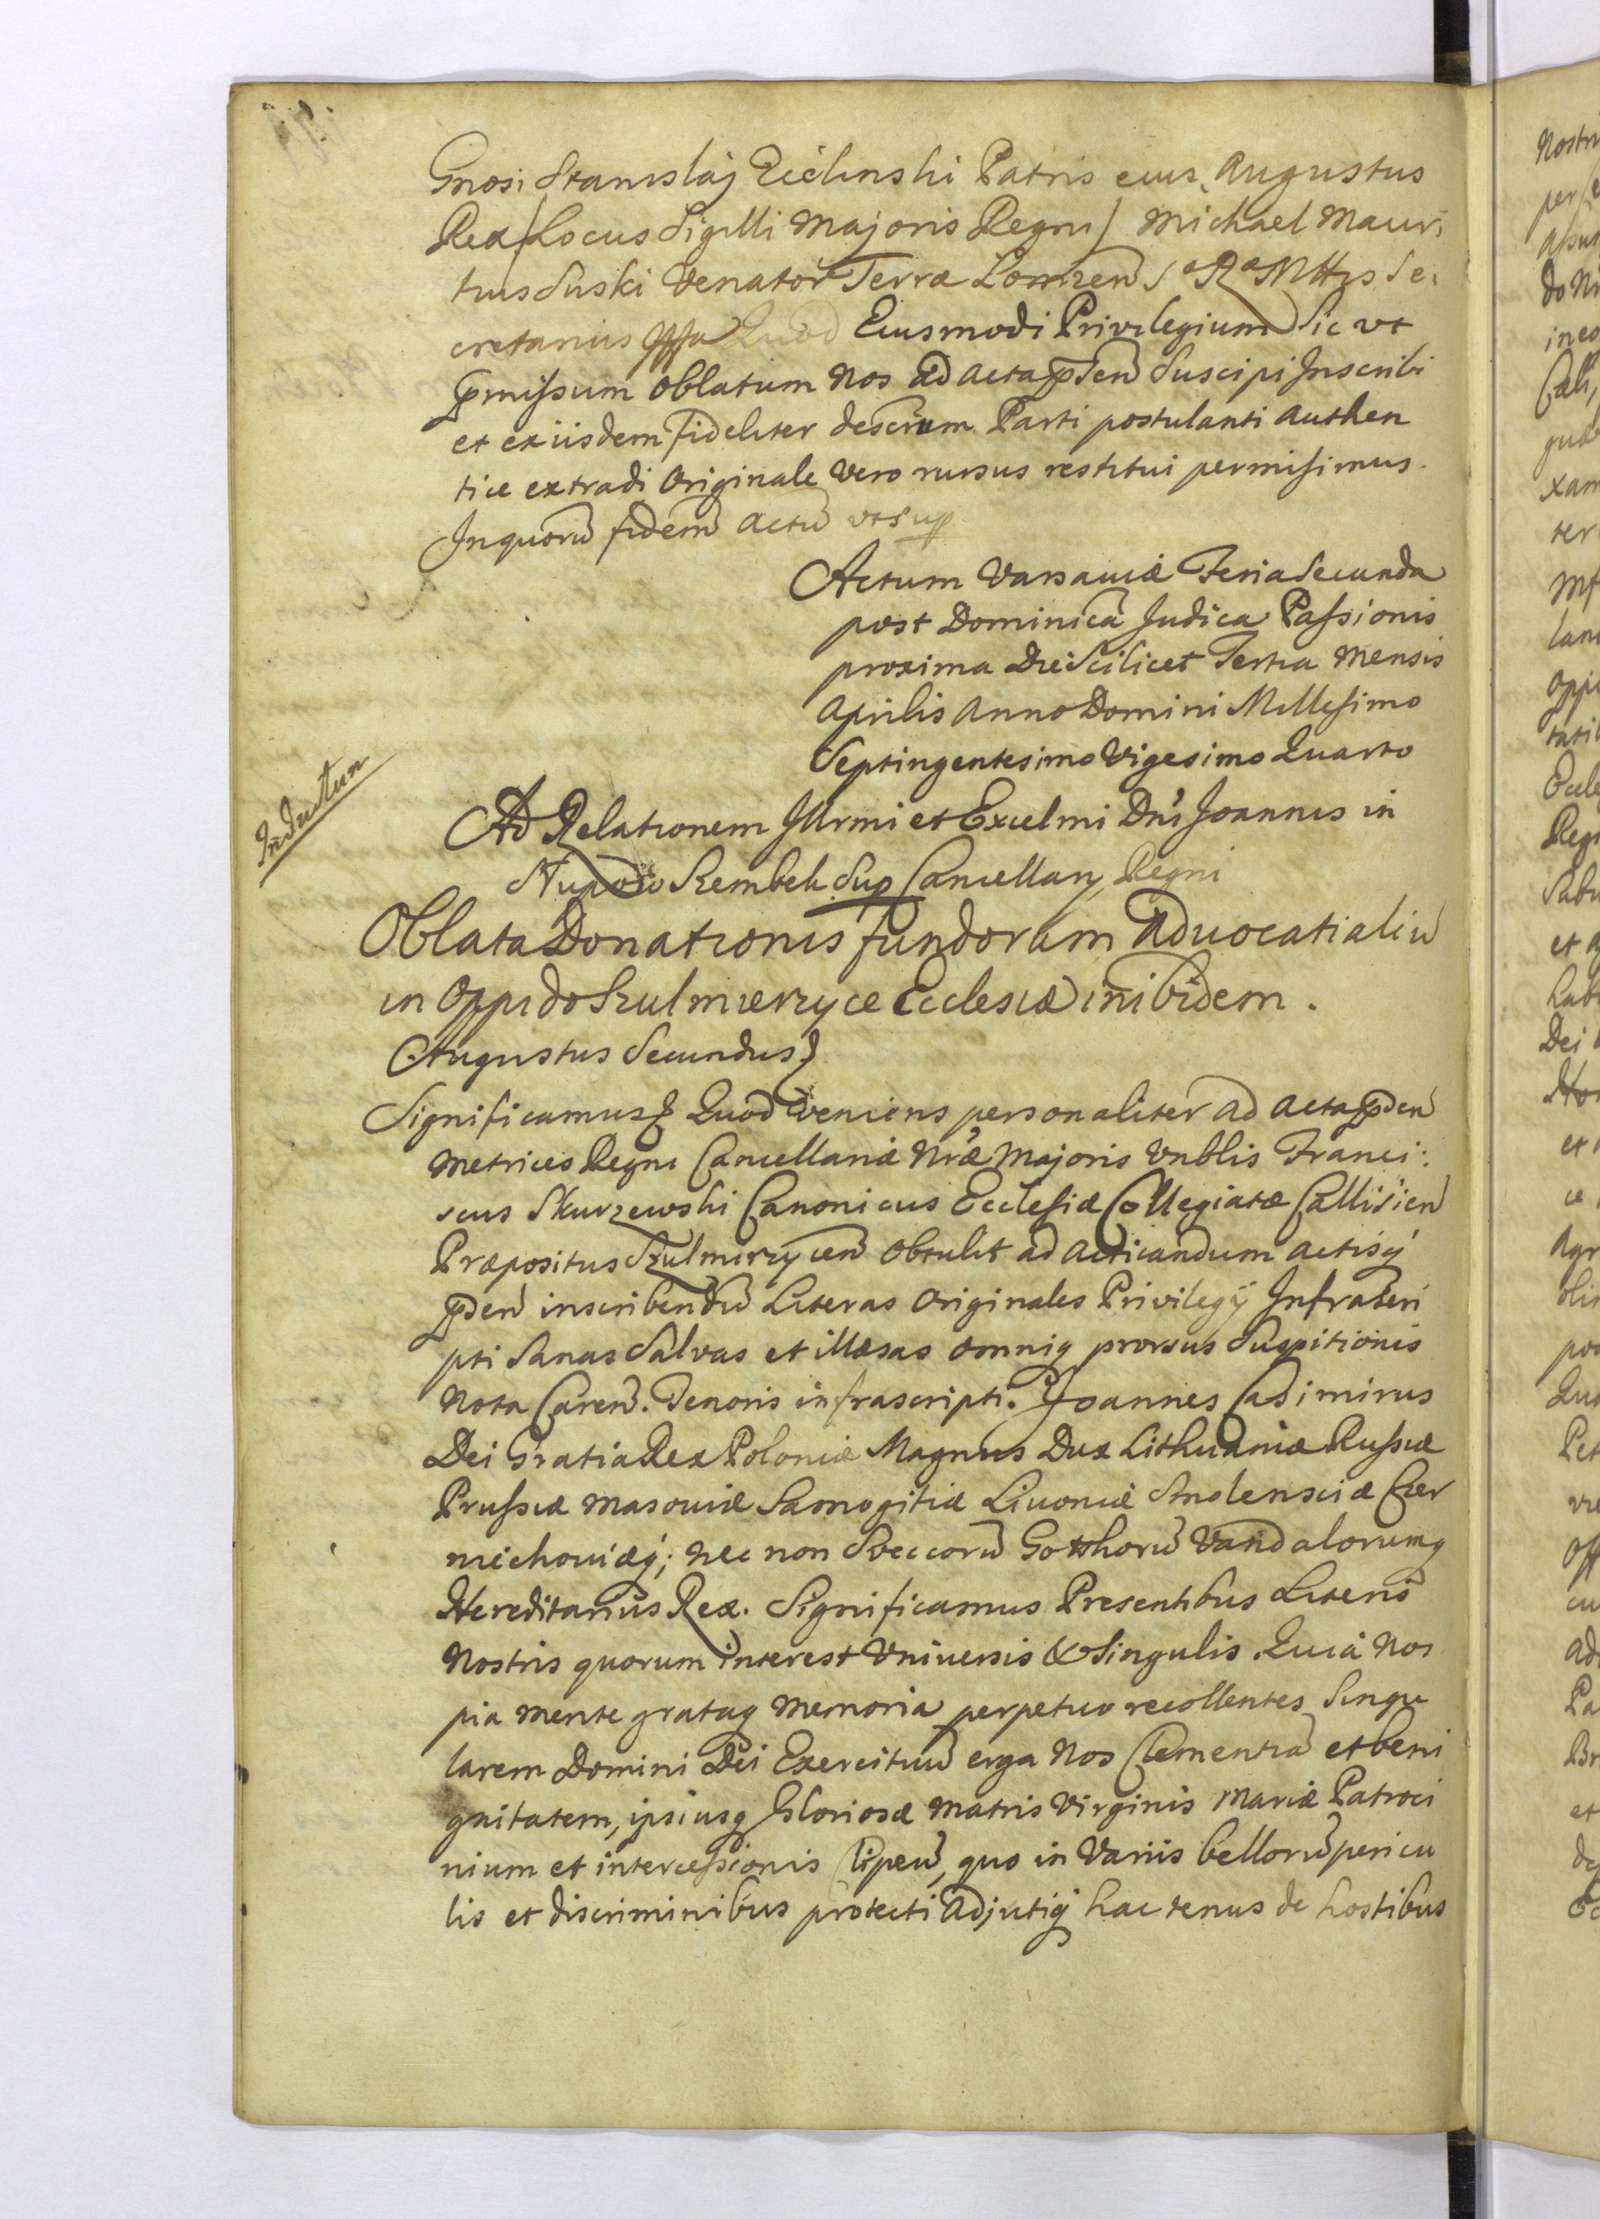 Gnosi Stanislaj Zielinski Patris eius, Augustus
Rex /Locus Sigilli Majoris Regni/ Michael Mauri
tius Suski Venator Terræ Lomzen S æ R æ Mttis Se:
cretarius Quod Eiusmodi Privilegium Sic vt
pmissum oblatum Nos ad acta pnden Suscipi Inscribi
et ex iisdem fideliter descrum Parti postulanti authen
tice extradi originale Vero rursus restitui permisimus.
In quorũ fidem actũ vt sup
Actum Varsaviæ Feria Secunda
post Dominicã Judica Passionis
proxima Die Scilicet Tertia Mensis
Aprilis Anno Domini Millesimo
Septingentesimo Vigesimo Quarto
Indultun
Ad Relationem Illrmi et Excelmi Dni Joannis in
Słupow Szembek Sup Cancellarij Regni
Oblata Donationis fundorum Advocatialiũ
in Oppido Szulmierzyce Ecclesiæ inibidem.
Augustus Secundus}
Significamus} Quod Veniens personaliter ad acta pnden
Metrices Regni Cancellariæ Nræ Majoris Vnblis Franci:
scus Skurzewski Canonicus Ecclesiæ Collegiatæ Callisien
Præpositus Szulmirzycen obtulit ad acticandum actisq
pnden inscribendũ Literas originales Privilegij Infrascri
pti Sanas Salvas et illæsas omniq prorsus Suspitionis
nota Caren. Tenoris infrascripti. Joannes Casimirus
Dei Gratia Rex Poloniæ Magnus Dux Lithuaniæ Russiæ
Prussiæ Masoviæ Samogitiæ Livoniæ Smolensciæ Czer
niechoviæq; nec non Sveccorũ Gotthorũ Vandalorumq
Hereditarius Rex. Significamus Presentibus Literis
Nostris quorum interest Vniversis & Singulis. Quia Nos
pia mente grataq memoria perpetuo recollentes Singu
larem Domini Dei Exercituũ erga Nos Clementiã et beni
gnitatem, ipsiusq Gloriosæ Matris Virginis Mariæ Patroci
nium et intercessionis Clipeũ, quo in Variis bellorũ pericu
lis et discriminibus protecti adjutiq hactenus de hostibus